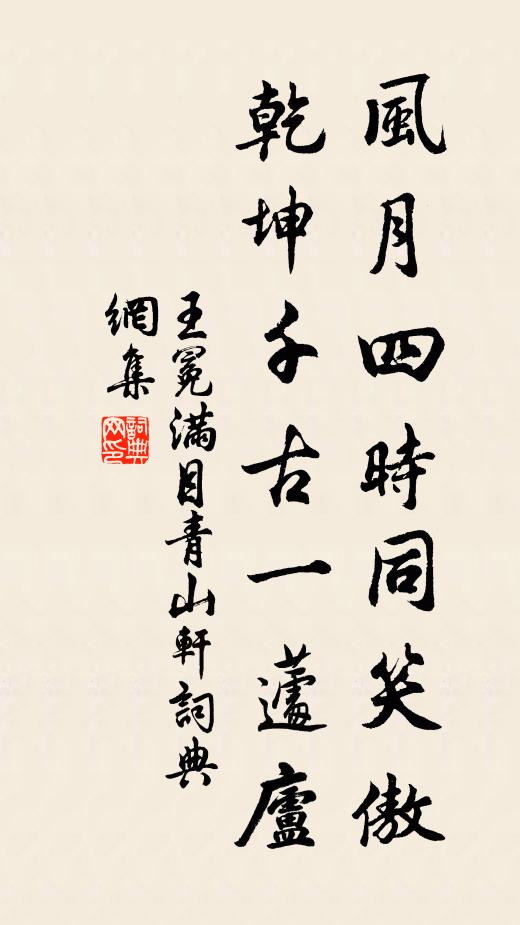 風月四時同笑傲
乾坤千古一蘧廬
王冕滿目青山軒詞典
網集
詞典网印